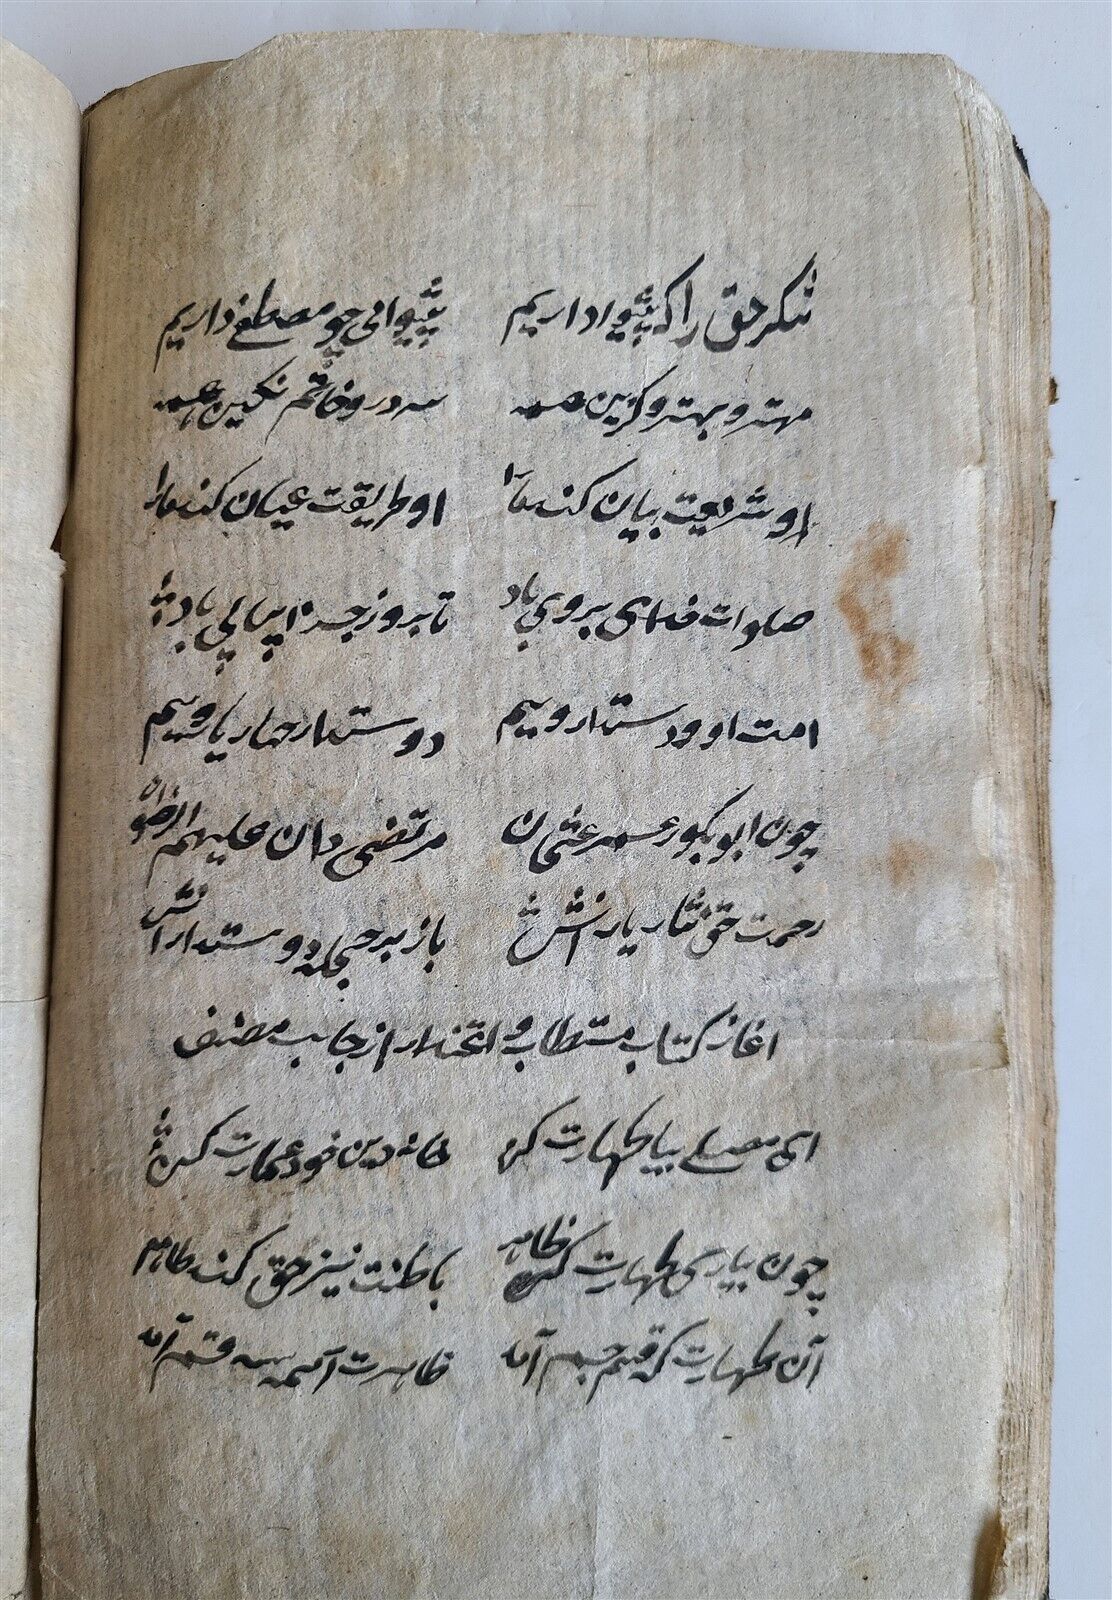 شکر حق را که پیشوا داریم پیشوائی چو مصطفے داریم
مهتر و بهتر و گزین همه در و خاتم نگین همه
او شریعت بیان کند ما را او طریقت عیان کند ما را
صلوات خدای بر وی باد تا بروز جزا پیاپی باد
امت او و دوستدار ویم دوستدار چهار یار ویم
چون ابوبکر و عمر عثمان مرتضی دان علیهم الرضوان
رحمت حق نثار یارانش باز بر جمله دوستدارانش
اغاز کتاب مستطاب و از جانب مصنف
ای مصلے بیا طهارت کن خانه دین خود عمارت کن
چون بیاری طهارت ظاهر باطنت نیز حق کند طاهر
آن طهارت که قسم جسم آمد ظاهرت سه قسم آمد